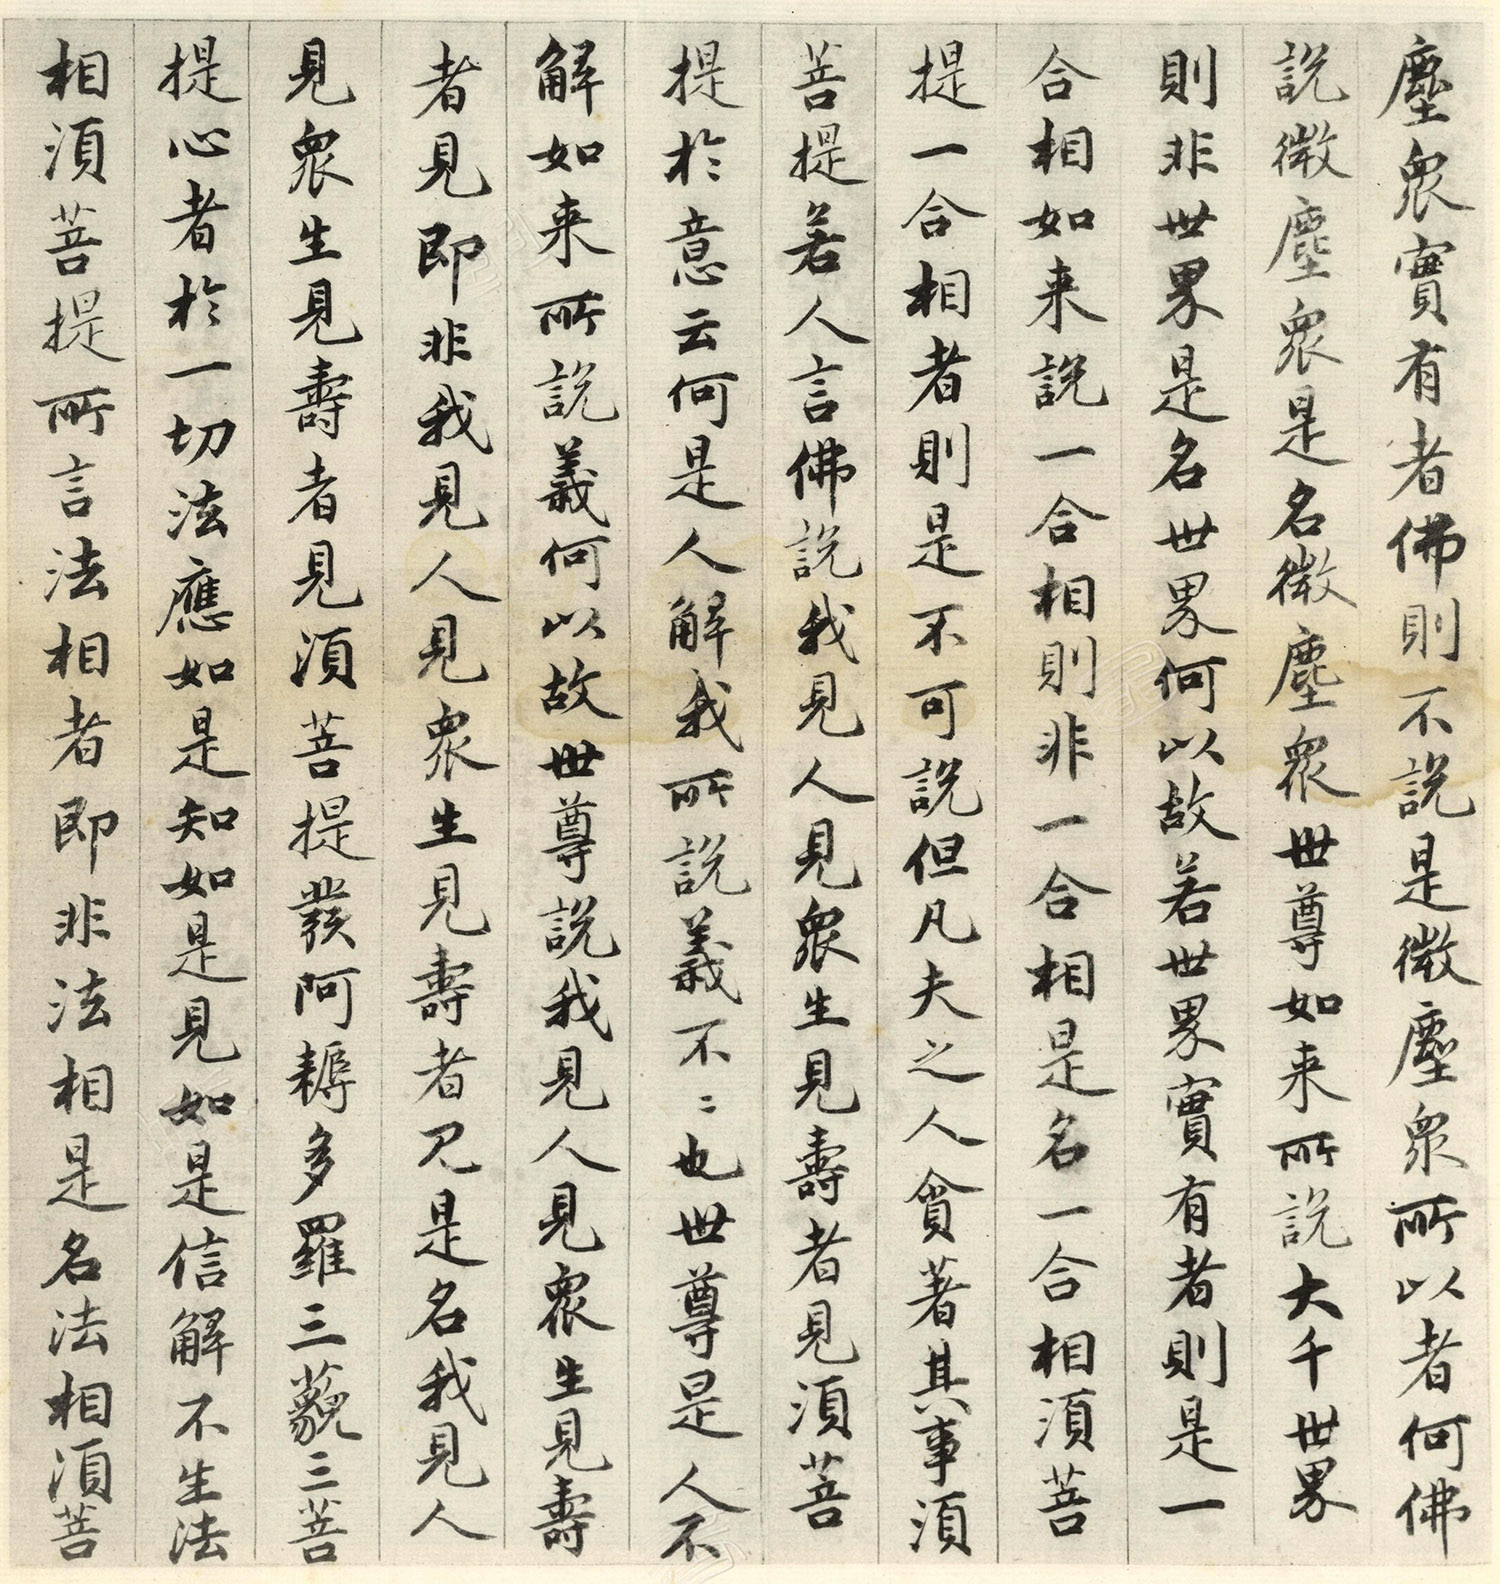 塵衆實有者佛則不說是微塵衆所以者何佛
說微塵衆是名微塵衆世尊如来所說大千世界
則非世界是名世界何以故若世界實有者則是一
合相如来說一合相則非一合相是名一合相須菩
提一合相者則是不可說但凡夫之人貪著其事須
菩提若人言佛說我見人見衆生見壽者見須菩
提於意云何是人解我所說義不不也世尊是人不
解如来所說義何以故世尊說我見人見衆生見壽
者見即非我見人見衆生見壽者見是名我見人
見衆生見壽者見須菩提發阿耨多羅三藐三菩
提心者於一切法應如是知如是見如是信解不生法
相須菩提所言法相者即非法相是名法相須菩